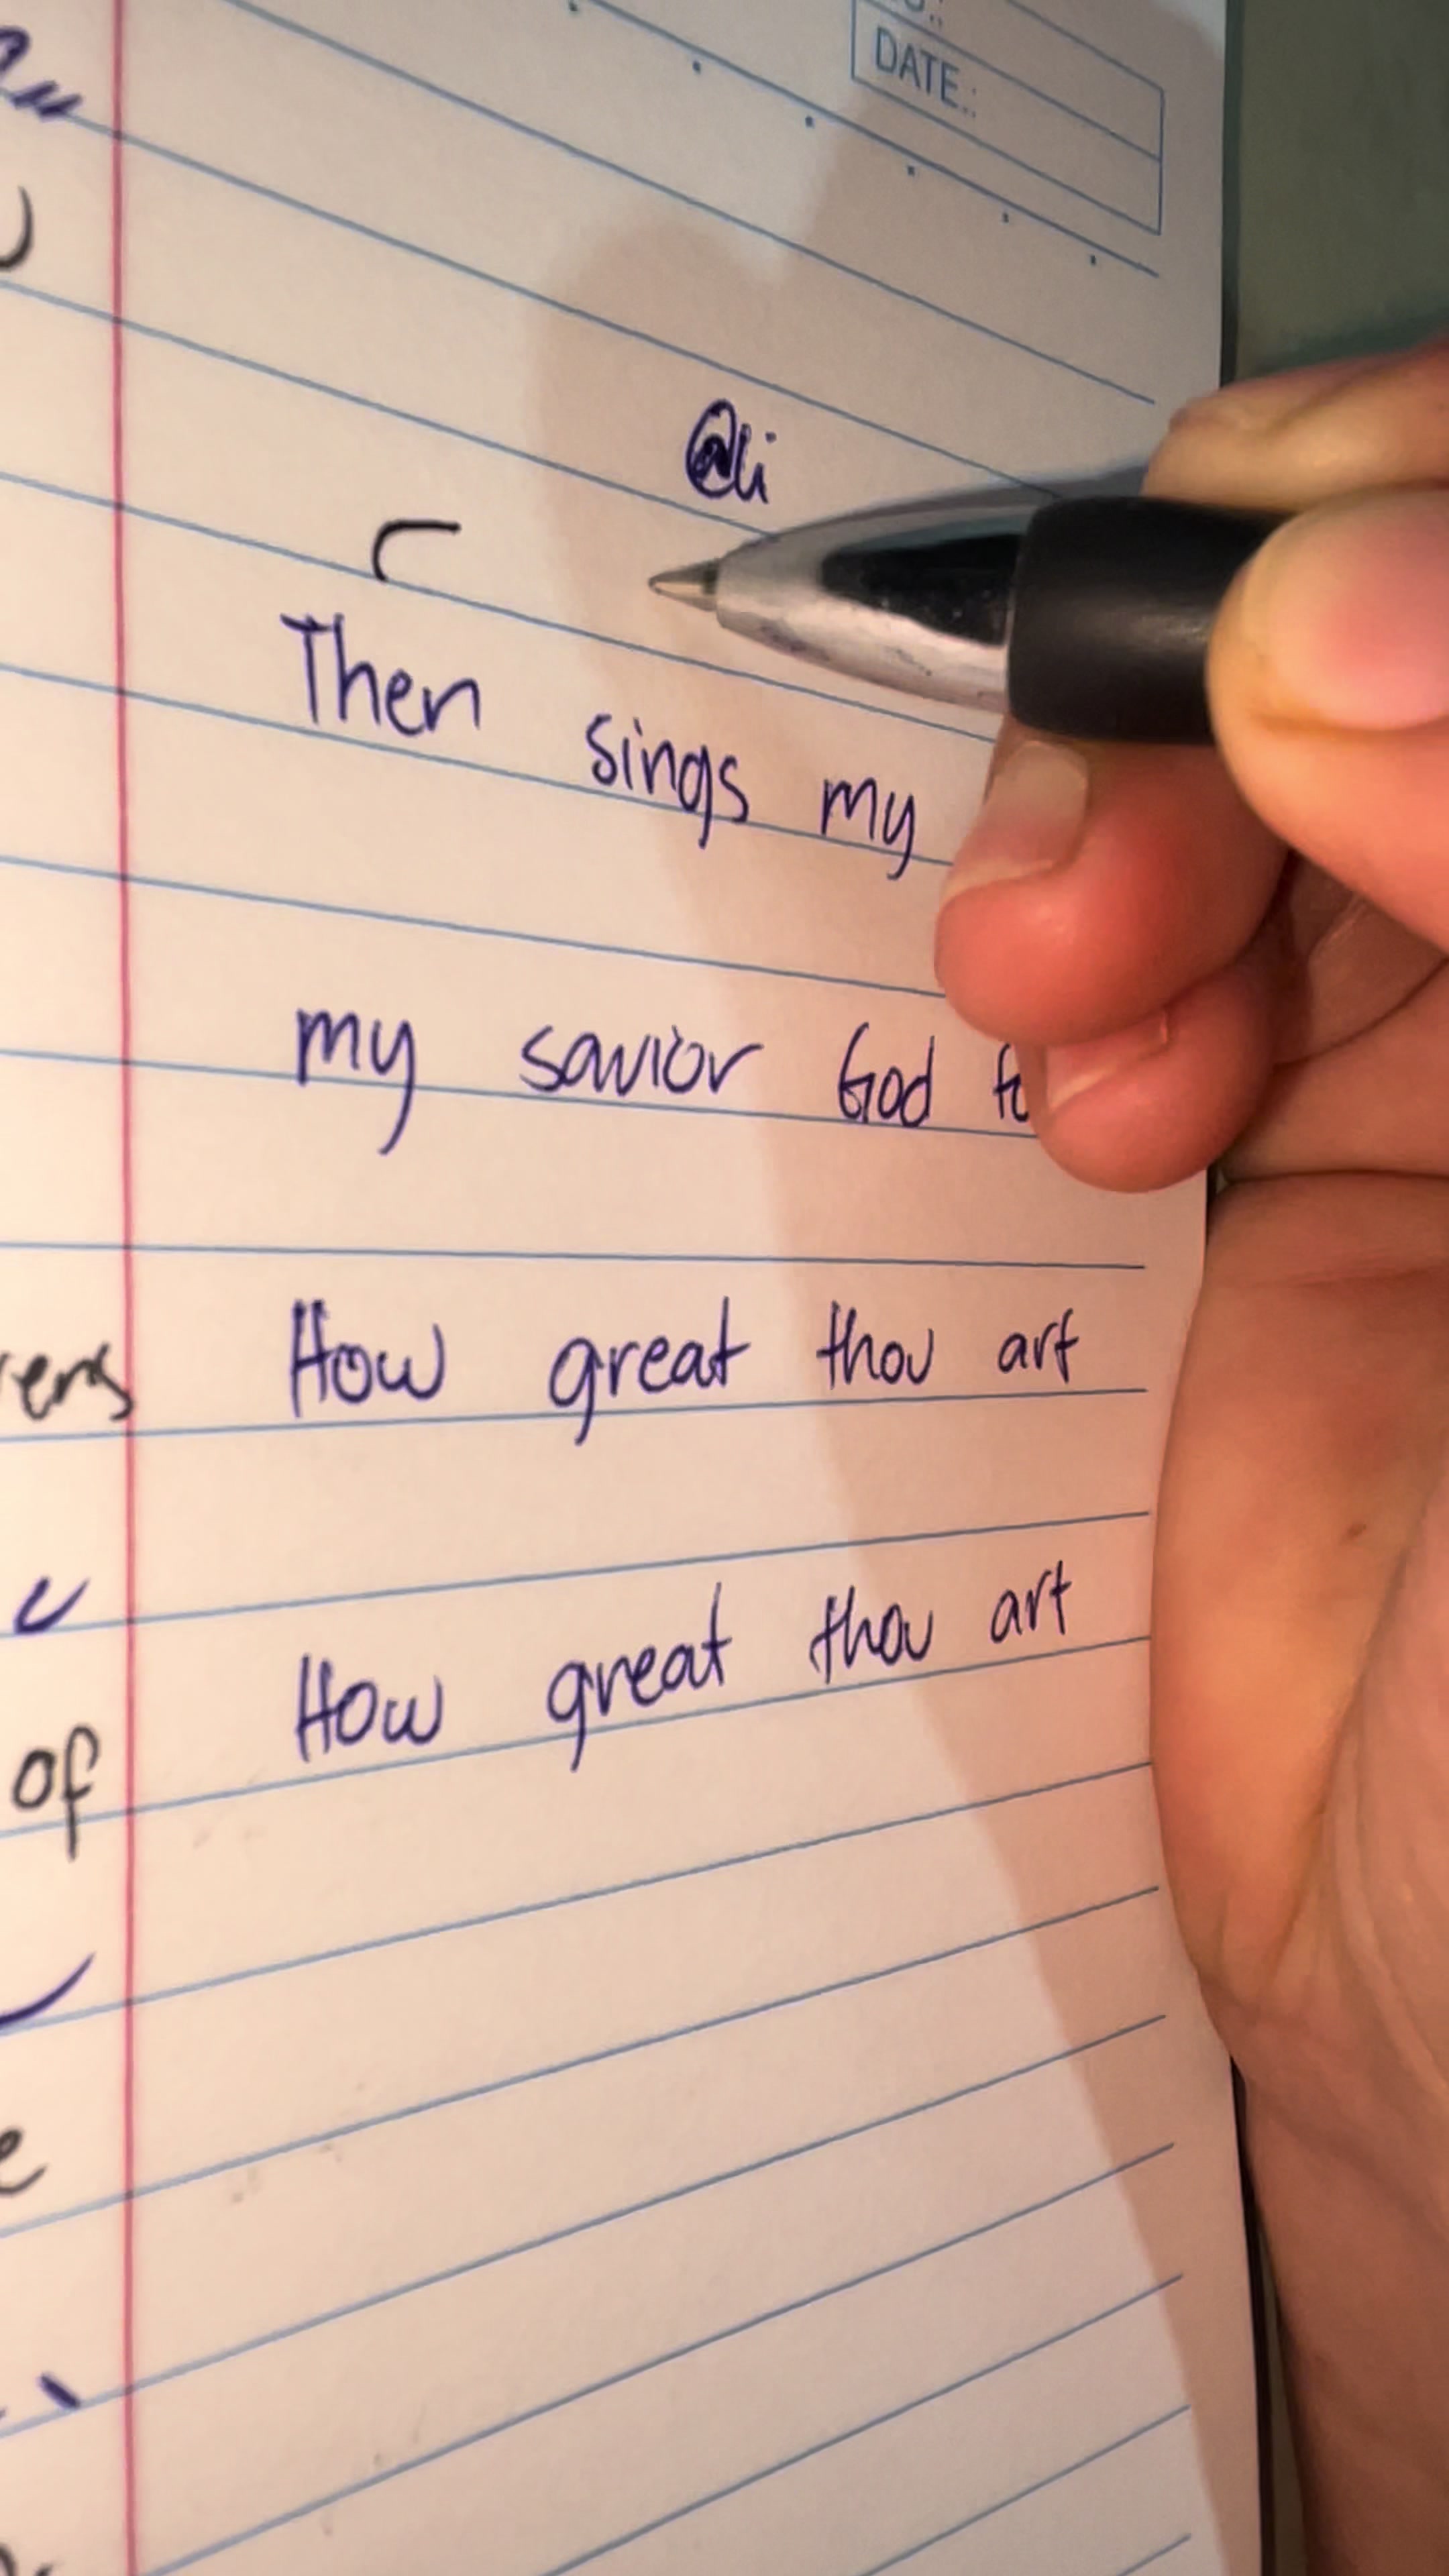 DATE.:
@li
Then sings my
my savior God
How great thou art
How great thou art
of